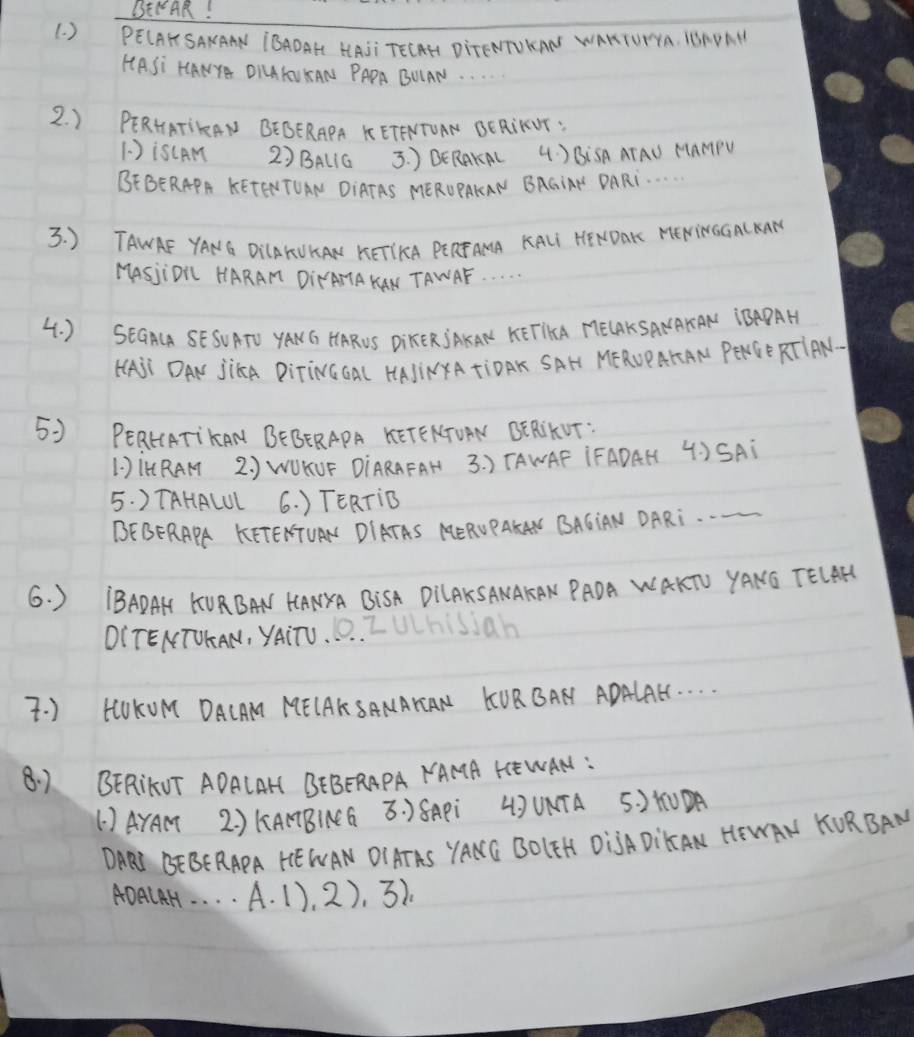 BENAR!
1.) PELAKSANAAN IBADAH HAJI TELAH DITENTUKAN WAKTUNYA. IBADAH
HAJI HANYA DILAKUKAN PADA BULAN .....
2.) PERHATIKAN BEBERAPA KETENTUAN BERIKUT:
1.) ISLAM 2) BALIG 3.) BERAKAL 4.) BISA ATAU MAMPU
BEBERAPA KETENTUAN DIATAS MERUPAKAN BAGIAN DARI .....
3.) TAWAF YANG DILAKUKAN KETIKA PERTAMA KALI HENDAK MENINGGALKAN
MASJIDIL HARAM DINAMAKAN TAWAF .....
4.) SEGALA SESUATU YANG HARUS DIKERJAKAN KETIKA MELAKSANAKAN IBADAH
HAJI DAN JIKA DITINGGAL HAJINYA TIDAK SAH MERUPAKAN PENGERTIAN--
5.) PERHATIKAN BEBERAPA KETENTUAN BERIKUT:
1.) IHRAM 2.) WUKUF DIARAFAH 3.) TAWAF IFADAH 4.) SAI
5.) TAHALUL 6.) TERTIB
BEBERAPA KETENTUAN DIATAS MERUPAKAN BAGIAN DARI .....
6.) IBADAH KURBAN HANYA BISA DILAKSANAKAN PADA WAKTU YANG TELAH
DITENTUKAN, YAITU..... Zulhisiah
7.) HUKUM DALAM MELAKSANAKAN KURBAN ADALAH....
8.) BERIKUT ADALAH BEBERAPA NAMA HEWAN:
1.) AYAM 2.) KAMBING 3.) SAPI 4) UNTA 5.) KUDA
DARI BEBERAPA HEWAN DIATAS YANG BOLEH DIJADIKAN HEWAN KURBAN
ADALAH.... A. 1), 2), 3).